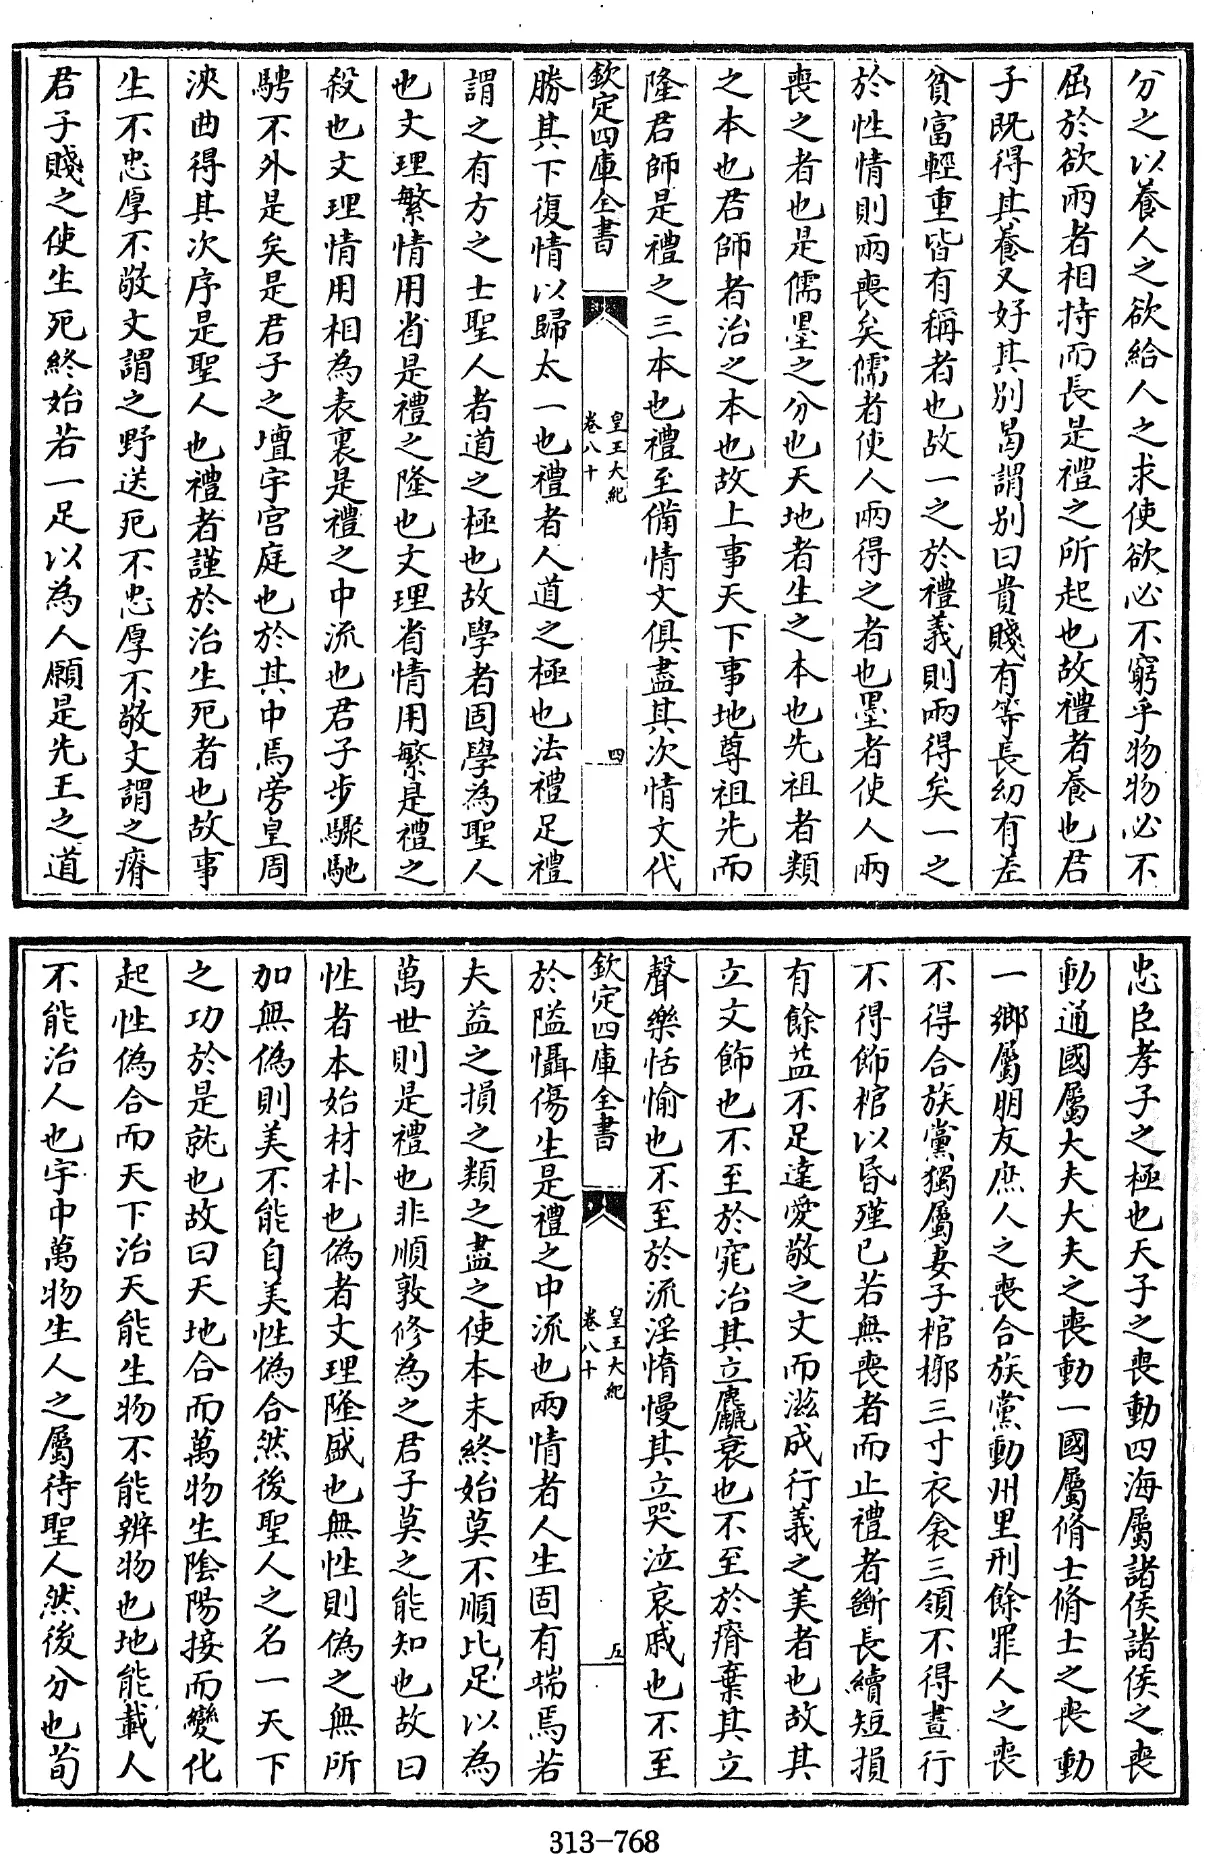 分之以養人之欲給人之求使欲必不窮乎物物必不
屈於欲兩者相持而長是禮之所起也故禮者養也君
子既得其養又好其別曷謂別曰貴賤有等長幼有差
貧富輕重皆有稱者也故一之於禮義則兩得矣一之
於性情則兩喪矣儒者使人兩得之者也墨者使人兩
喪之者也是儒墨之分也天地者生之本也先祖者類
之本也君師者治之本也故上事天下事地尊祖先而
隆君師是禮之三本也禮至備情文俱盡其次情文代
欽定四庫全書
皇王大紀
卷八十
四
勝其下復情以歸太一也禮者人道之極也法禮足禮
謂之有方之士聖人者道之極也故學者固學為聖人
也文理繁情用省是禮之隆也文理省情用繁是禮之
殺也文理情用相為表裏是禮之中流也君子步驟馳
騁不外是矣是君子之壇宇宮庭也於其中焉旁皇周
浹曲得其次序是聖人也禮者謹於治生死者也故事
生不忠厚不敬文謂之野送死不忠厚不敬文謂之瘠
君子賤之使生死終始若一足以為人願是先王之道
忠臣孝子之極也天子之喪動四海屬諸侯諸侯之喪
動通國屬大夫大夫之喪動一國屬脩士脩士之喪動
一鄉屬朋友庶人之喪合族黨動州里刑餘罪人之喪
不得合族黨獨屬妻子棺槨三寸衣衾三領不得晝行
不得飾棺以昏殣已若無喪者而止禮者斷長續短損
有餘益不足達愛敬之文而滋成行義之美者也故其
立文飾也不至於窕冶其立麤衰也不至於瘠棄其立
聲樂恬愉也不至於流淫惰慢其立哭泣哀戚也不至
欽定四庫全書
皇王大紀
卷八十
五
於隘懾傷生是禮之中流也兩情者人生固有端焉若
夫益之損之類之盡之使本末終始莫不順比足以為
萬世則是禮也非順敦修為之君子莫之能知也故曰
性者本始材朴也偽者文理隆盛也無性則偽之無所
加無偽則美不能自美性偽合然後聖人之名一天下
之功於是就也故曰天地合而萬物生陰陽接而變化
起性偽合而天下治天能生物不能辨物也地能載人
不能治人也宇中萬物生人之屬待聖人然後分也荀
313-768